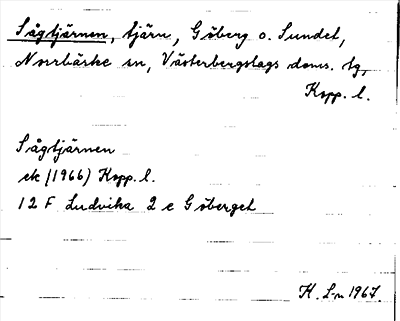 Sågtjärnen, tjärn, Gåberg o. Sundet,
Norrbärke sn, Västerbergslags doms. tg,
Kopp. l.
Sågtjärnen
ek (1966) Kopp. l.
12 F Ludvika 2 e Gåberget
H. L-n 1967.